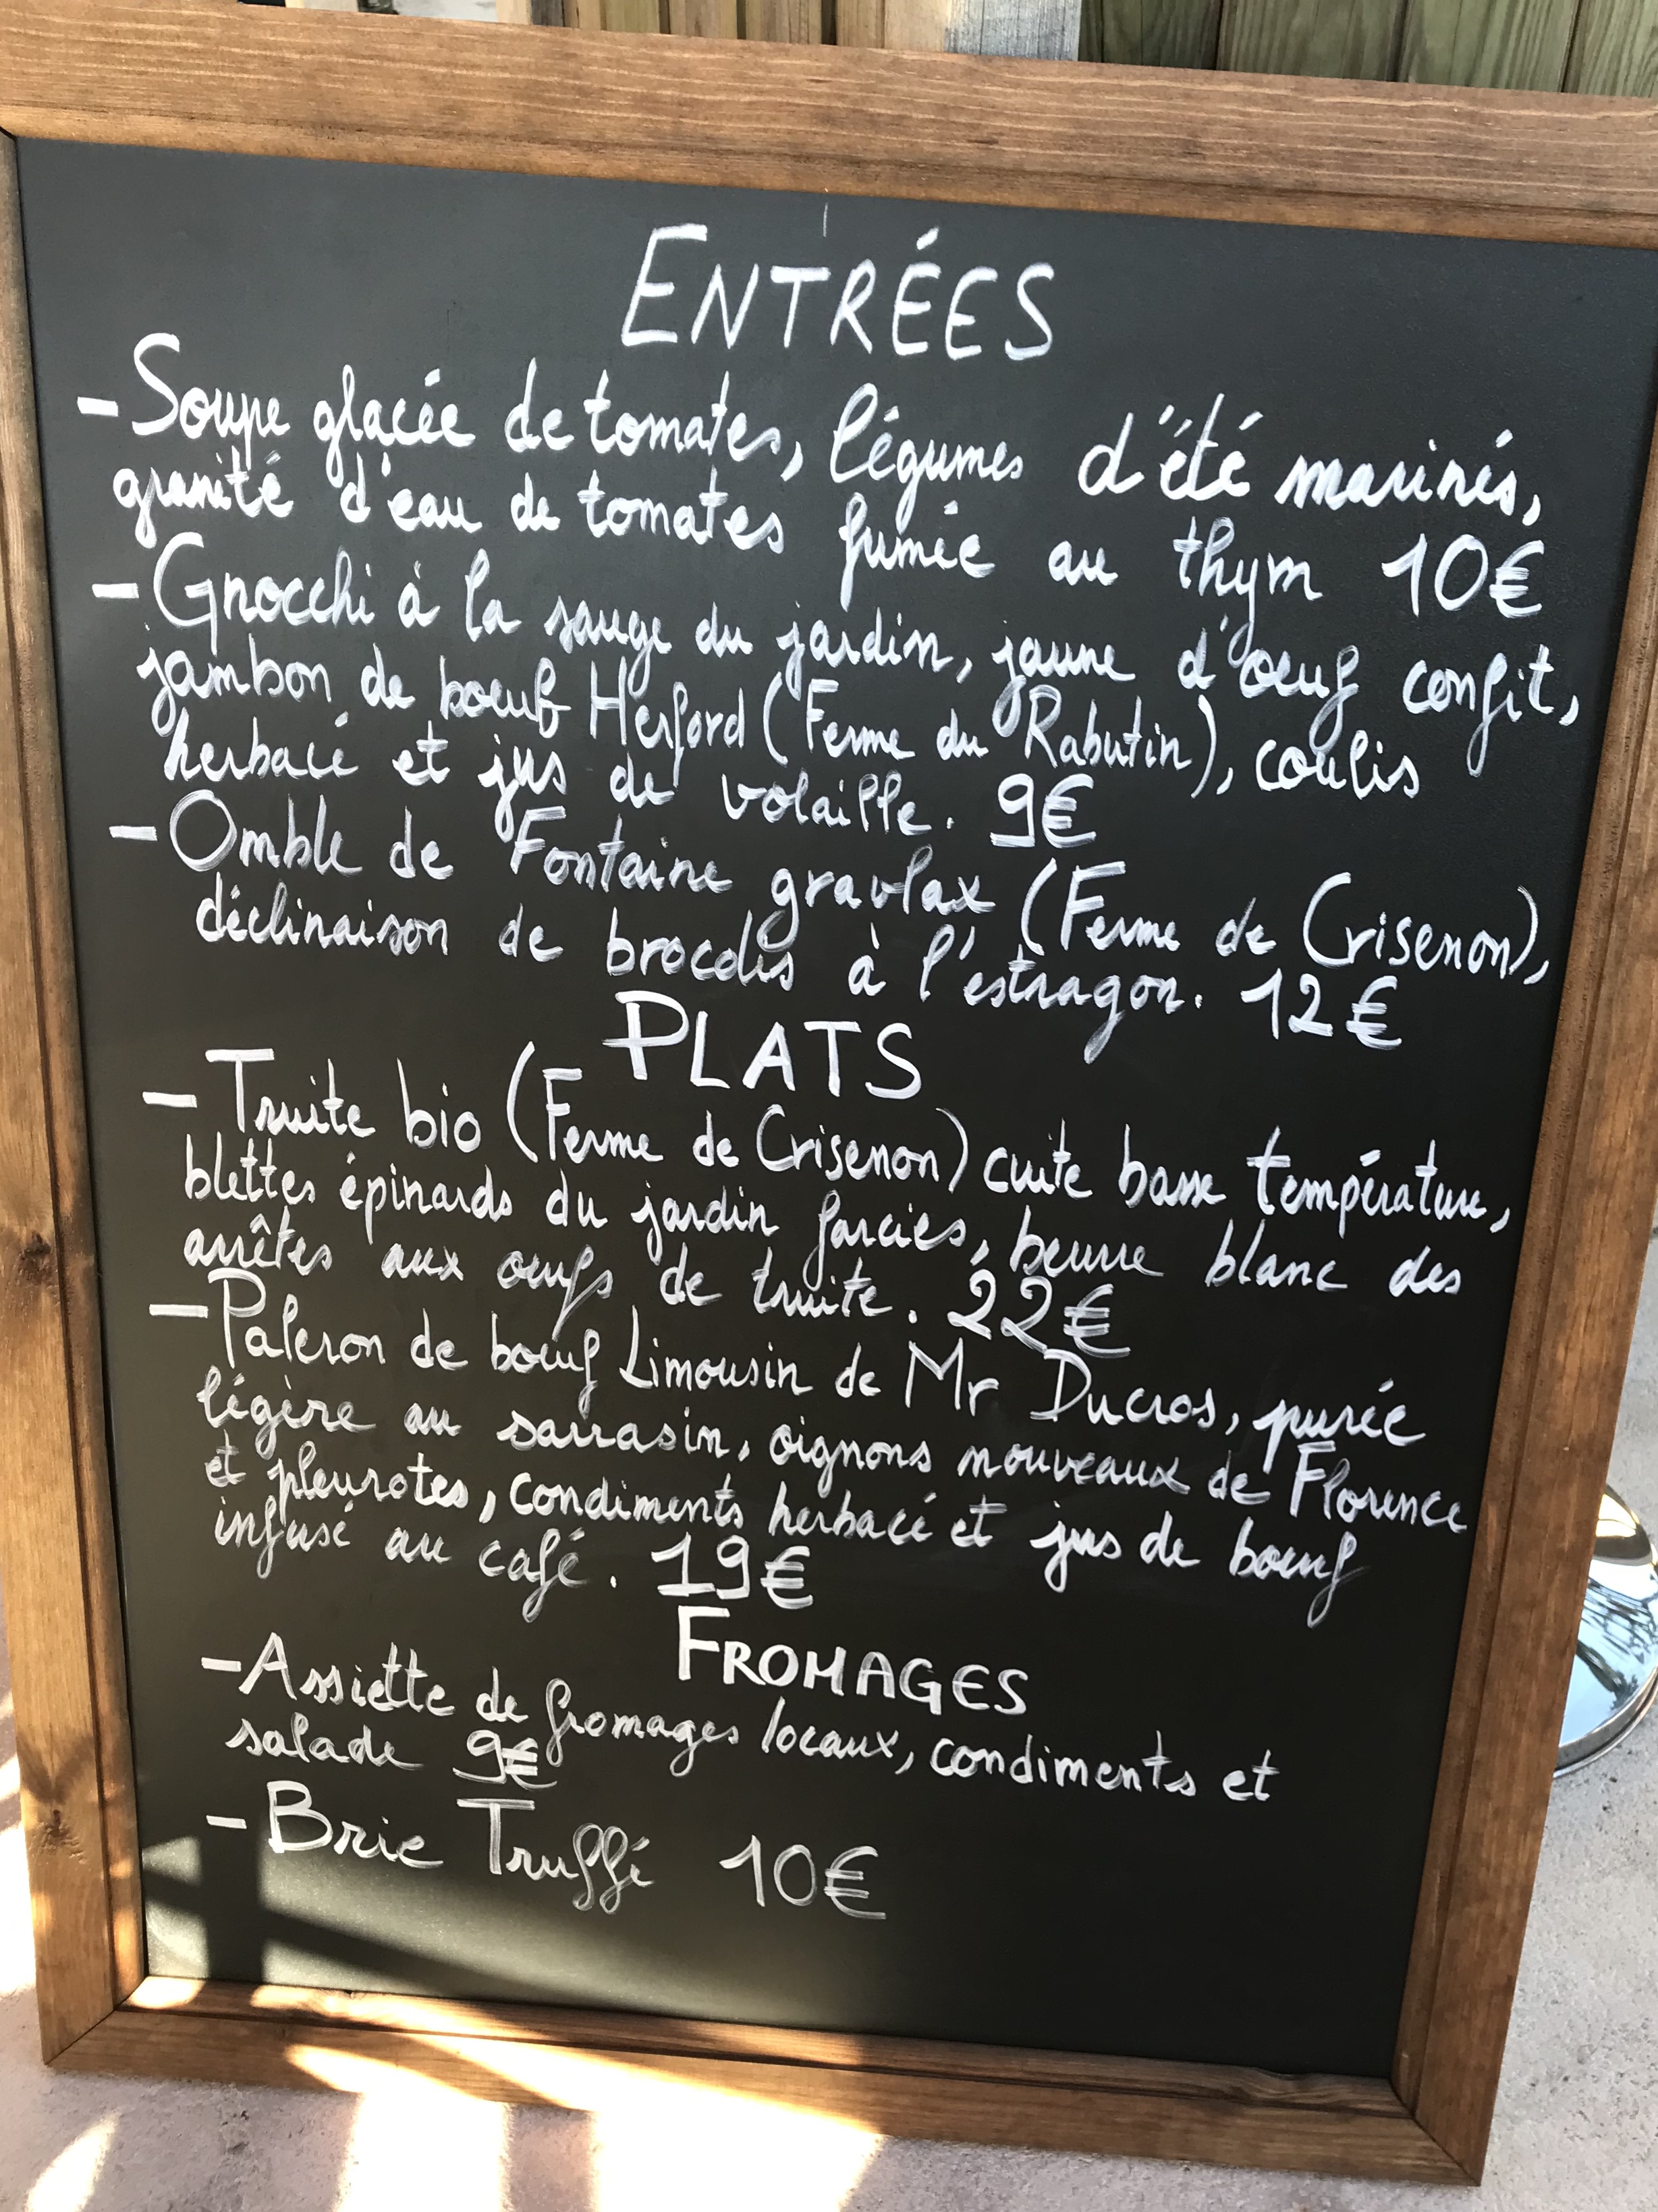 ENTRÉES
- Soupe glacée de tomates, légumes d'été marinés,
granité d'eau de tomates fumée au thym 10€
- Gnocchi à la sauge du jardin, jaune d'oeuf confit,
jambon de boeuf Herford (Ferme du Rabutin), coulis
herbacé et jus de volaille. 9€
- Omble de Fontaine gravlax (Ferme de Crisenon),
déclinaison de brocolis à l'estragon. 12€
PLATS
- Truite bio (Ferme de Crisenon) cuite basse température,
blettes épinards du jardin farcies, beurre blanc des
arrêtes aux oeufs de truite. 22€
- Paleron de boeuf Limousin de Mr Ducros, purée
légère au sarrasin, oignons nouveaux de Florence
et pleurotes, condiments herbacé et jus de boeuf
infusé au café. 19€
FROMAGES
- Assiette de fromages locaux, condiments et
salade 9€
- Brie Truffé 10€